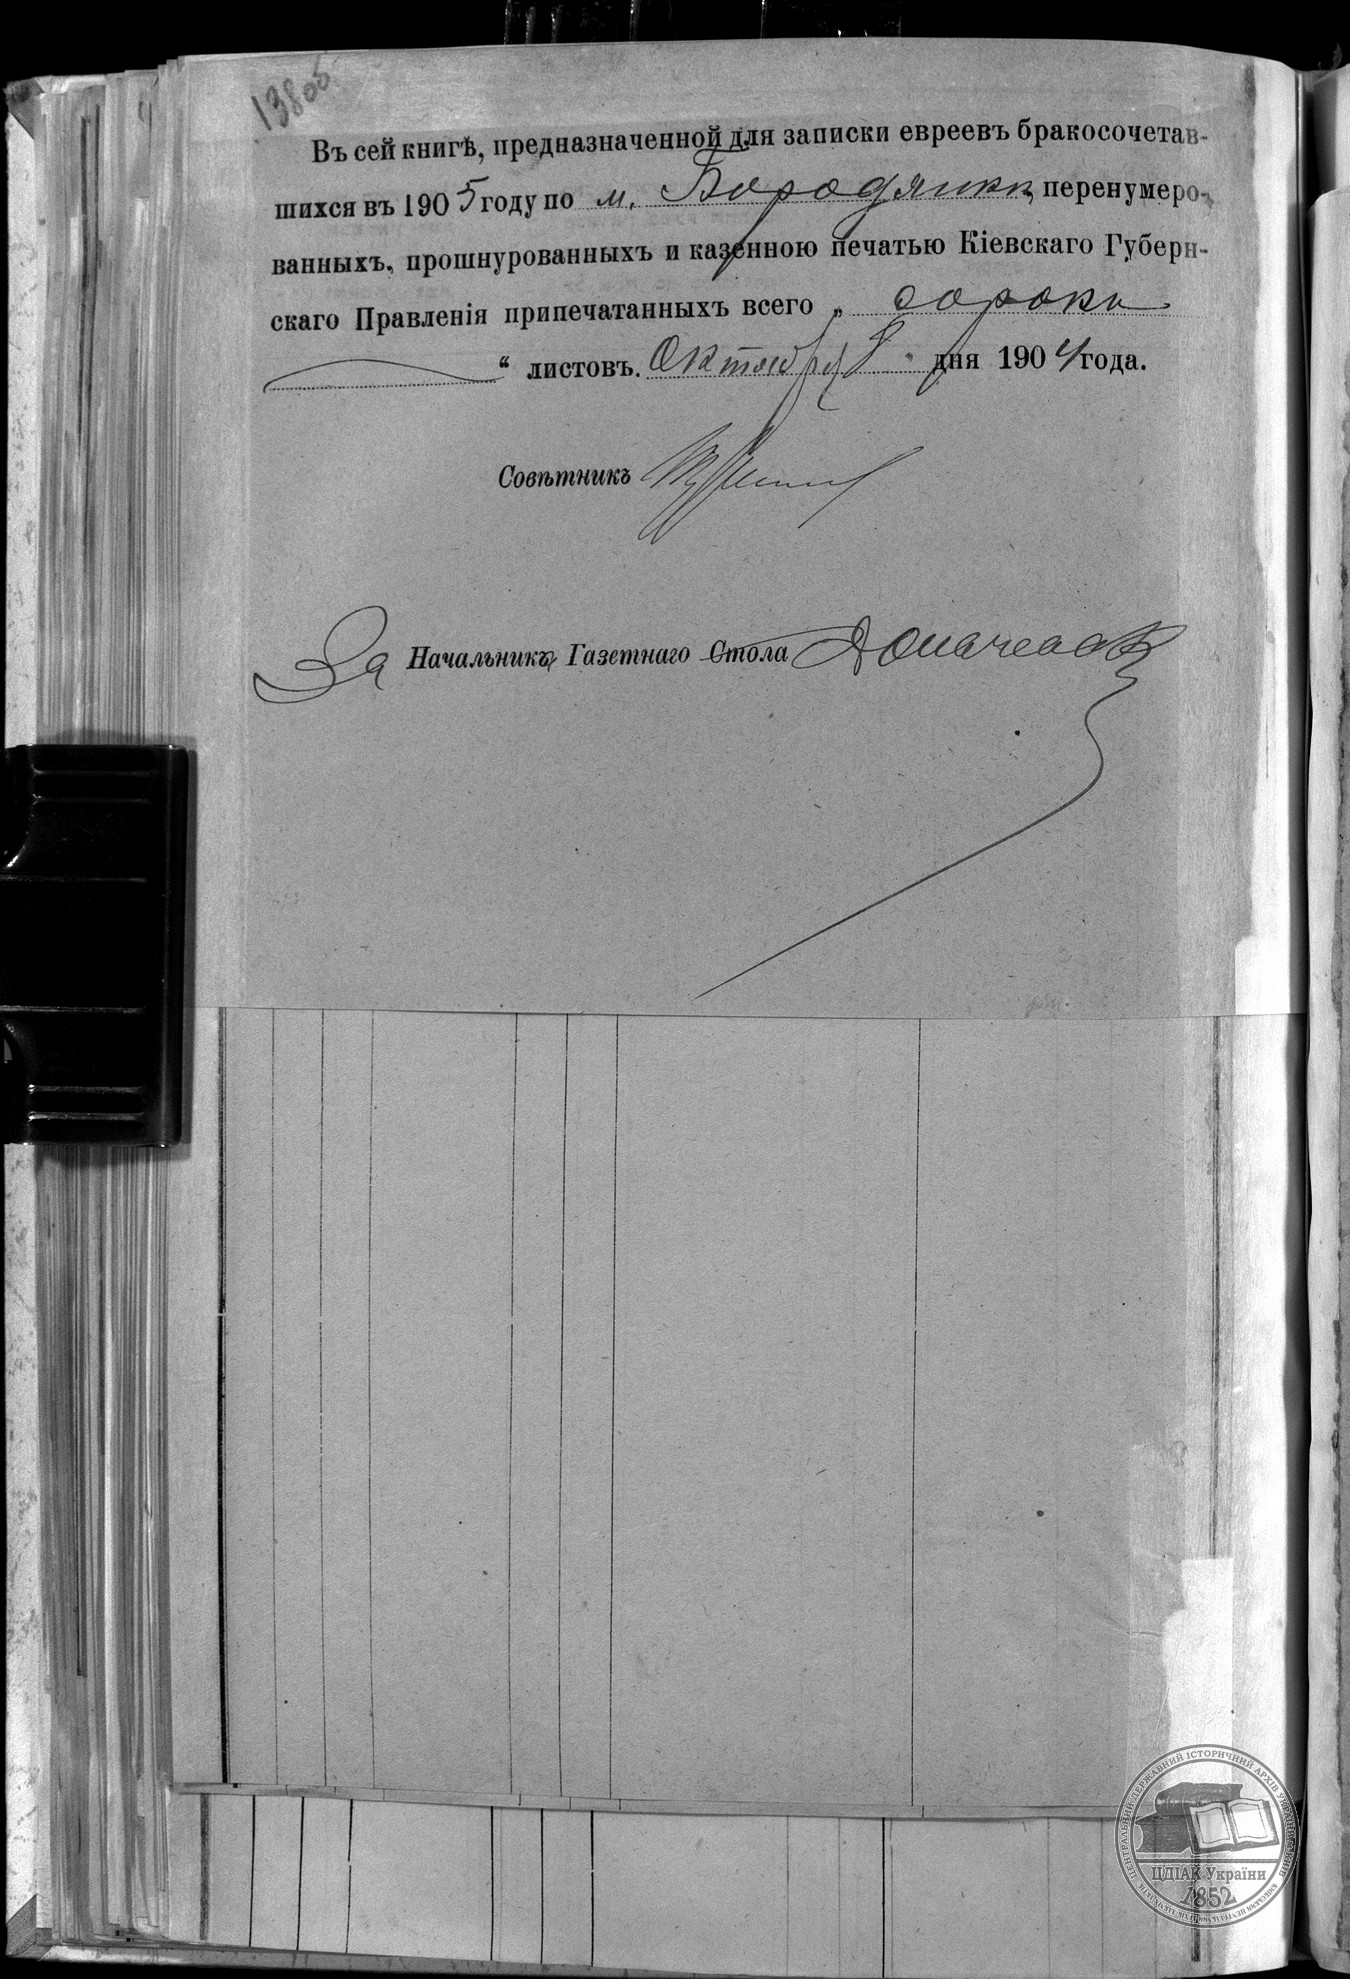 138об
Въ сей книгѣ, предназначенной для записки евреевъ бракосочетав-
шихся въ 1905 году по м. Бородянкѣ перенумеро-
ванныхъ, прошнурованныхъ и казенною печатью Кіевскаго Губерн-
скаго Правленія припечатанныхъ всего „ сорокъ
“ листовъ. Октября 8 дня 1904 года.
Совѣтникъ
За Начальника Газетнаго Стола
ЦЕНТРАЛЬНИЙ ДЕРЖАВНИЙ ІСТОРИЧНИЙ АРХІВ УКРАЇНИ
ЦДІАК України
1852